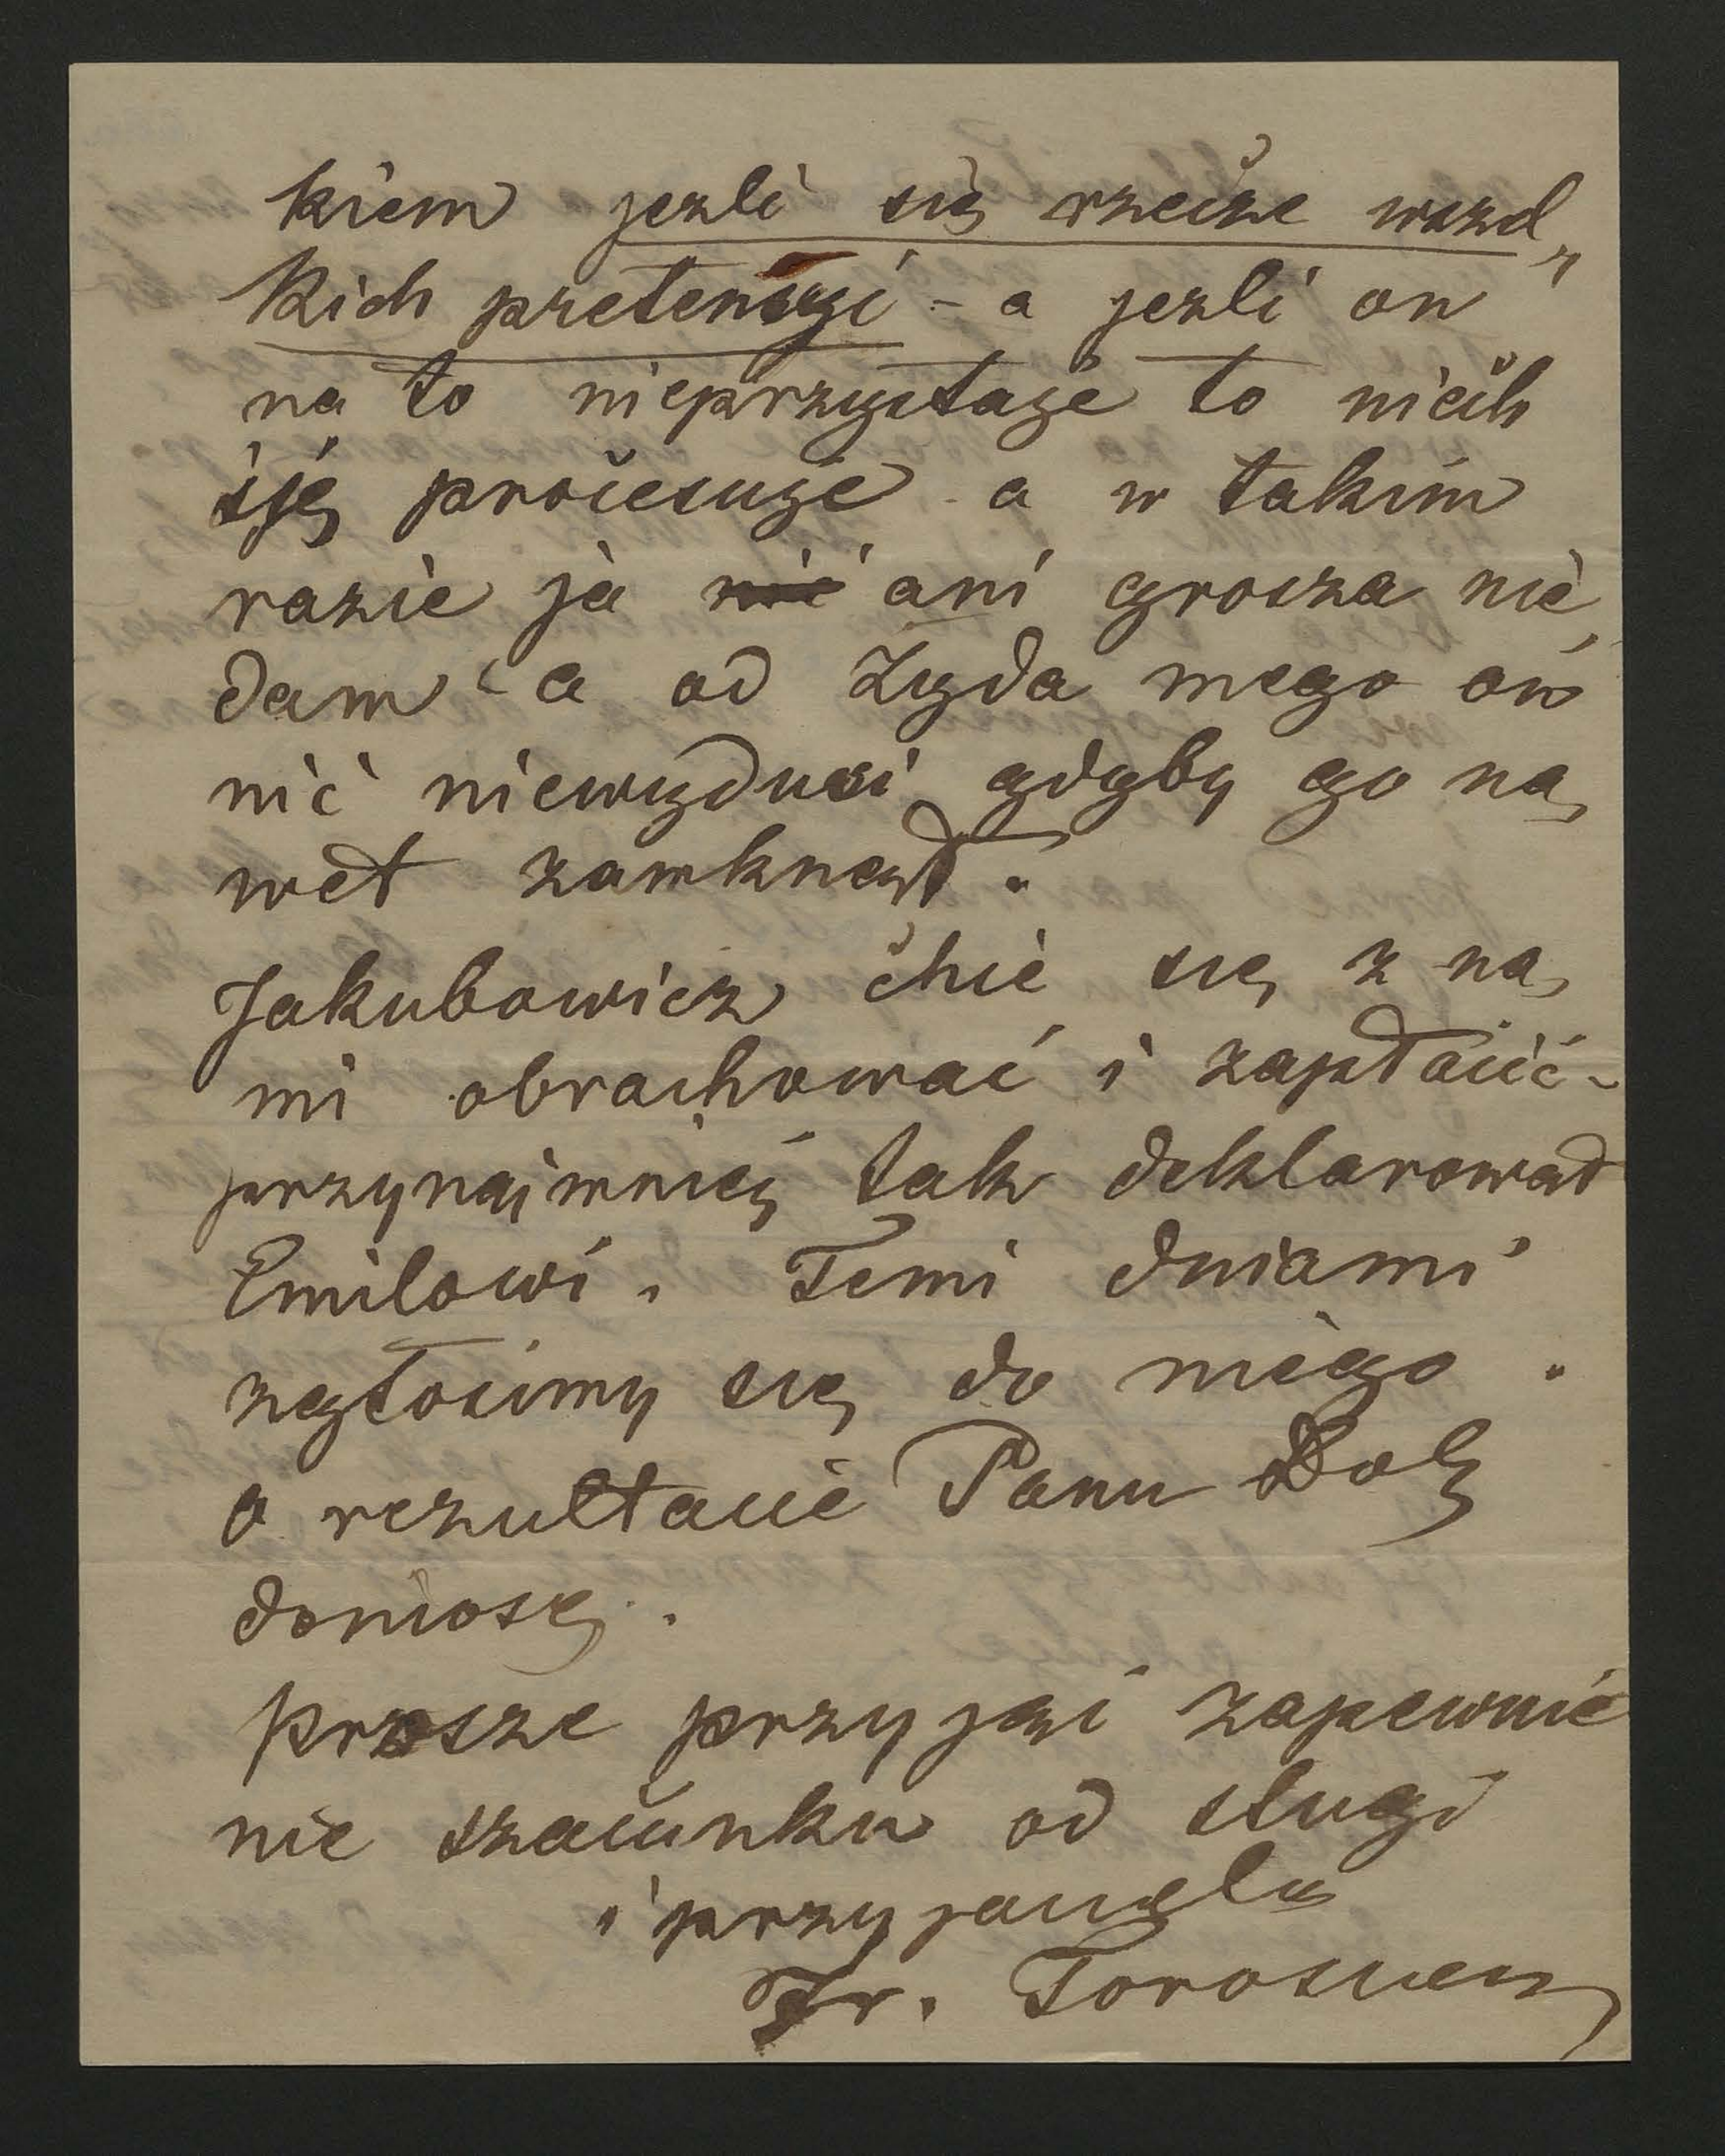 kiem jezli się rzecze wszel„
kich pretensyi – a jezli on
na to nieprzystaje to niech
się procesuje a w takim
razie ja nic ani grosza nie
dam – a od Żyda mego on
nic niewydusi gdyby go na„
wet zamknął.
Jakubowicz chce się z na„
mi obrachować i zapłacić –
przynajmniej tak deklarował
Emilowi. Temi dniami
zgłosimy się do niego.
o rezultacie Panu Dob
doniosę.
Prosze przyjąć zapewnie
nie szacunku od sługi
i przyjaciela
Fr. Torosiewicz